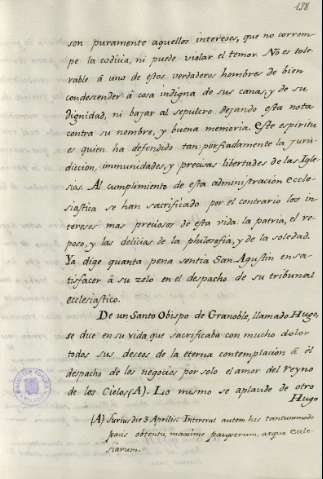 158
son puramente aquellos intereses, que no corrom-
pe la codicia, ni puede violar el temor. No es tole-
rable á uno de estos verdaderos hombres de bien
condescender á cosa indigna de sus canas, y de su
Dignidad, ni bajar al sepulcro dejando esta nota
contra su nombre, y buena memoria. Este espiritu
es quien ha defendido tan porfiadamente la juris-
diccion, immunidades, y precisas libertades de las Igle-
sias. Al cumplimiento de esta administración eccle-
siastica se han sacrificado por el contrario los in-
tereses mas preciosos de esta vida la patria, el re-
poso, y las delicias de la philosofia, y de la soledad.
Ya dige quanta pena sentia San Agustin en sa-
tisfacer á su zelo en el despacho de su tribunal
ecclesiastico.
De un Santo Obispo de Granoble, llamado Hugo,
se dice en su vida que sacrificaba con mucho dolor
todos sus deseos de la eterna contemplacion á el
despacho de los negocios por solo el amor del Reyno
de los Cielos (A). Lo mismo se aplaude de otro
Hugo
(A) Surius die 3 Aprilis: Intererat autem his tantummodo
pacis obtentu, maxime pauperum, atque eccle-
siarum.